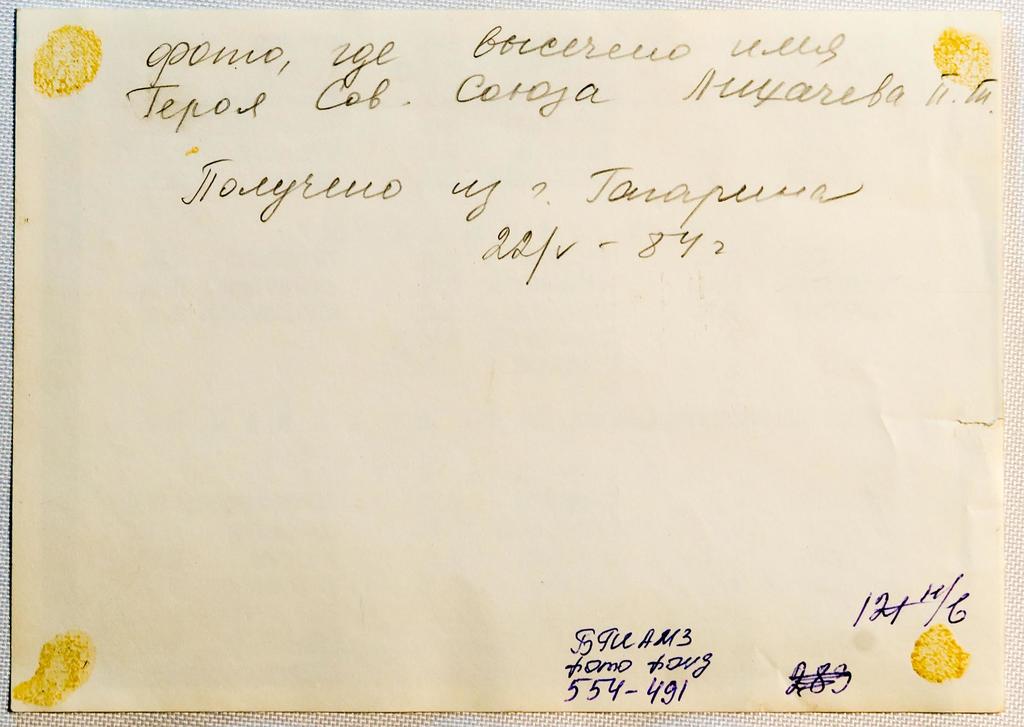 фото, где высечено имя
Героя Сов. Союза Лихачева П.Т.
Получено из г. Гагарина
22/V - 84 г
121 н/в
БГИАМЗ
фото фонд
554-491
283